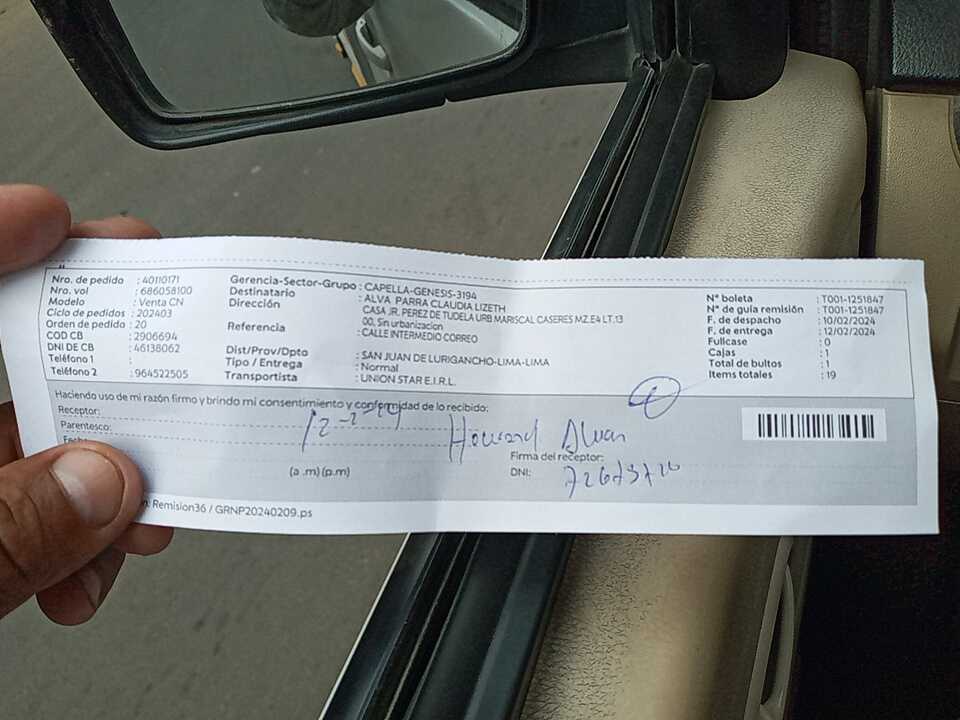 Nro. de pedido : 40110171
Nro. vol : 686058100
Modelo : Venta CN
Ciclo de pedidos : 202403
Orden de pedido : 20
COD CB : 2906694
DNI DE CB : 46138062
Teléfono 1 :
Teléfono 2 : 964522505
Gerencia-Sector-Grupo : CAPELLA-GENESIS-3194
Destinatario : ALVA PARRA CLAUDIA LIZETH
Dirección CASA JR. PEREZ DE TUDELA URB MARISCAL CASERES MZ.E4 LT.13
00, Sin urbanizacion
Referencia : CALLE INTERMEDIO CORREO
Dist/Prov/Dpto : SAN JUAN DE LURIGANCHO-LIMA-LIMA
Tipo / Entrega : Normal
Transportista : UNION STAR E.I.R.L.
N° boleta : T001-1251847
N° de guía remisión : T001-1251847
F. de despacho : 10/02/2024
F. de entrega : 12/02/2024
Fullcase : 0
Cajas : 1
Total de bultos : 1
Items totales : 19
Haciendo uso de mi razón firmo y brindo mi consentimiento y conformidad de lo recibido:
Receptor:
12-2-24
Parentesco:
Howard
Firma del receptor:
(a .m) (p.m)
DNI:
Remision36 / GRNP20240209.ps